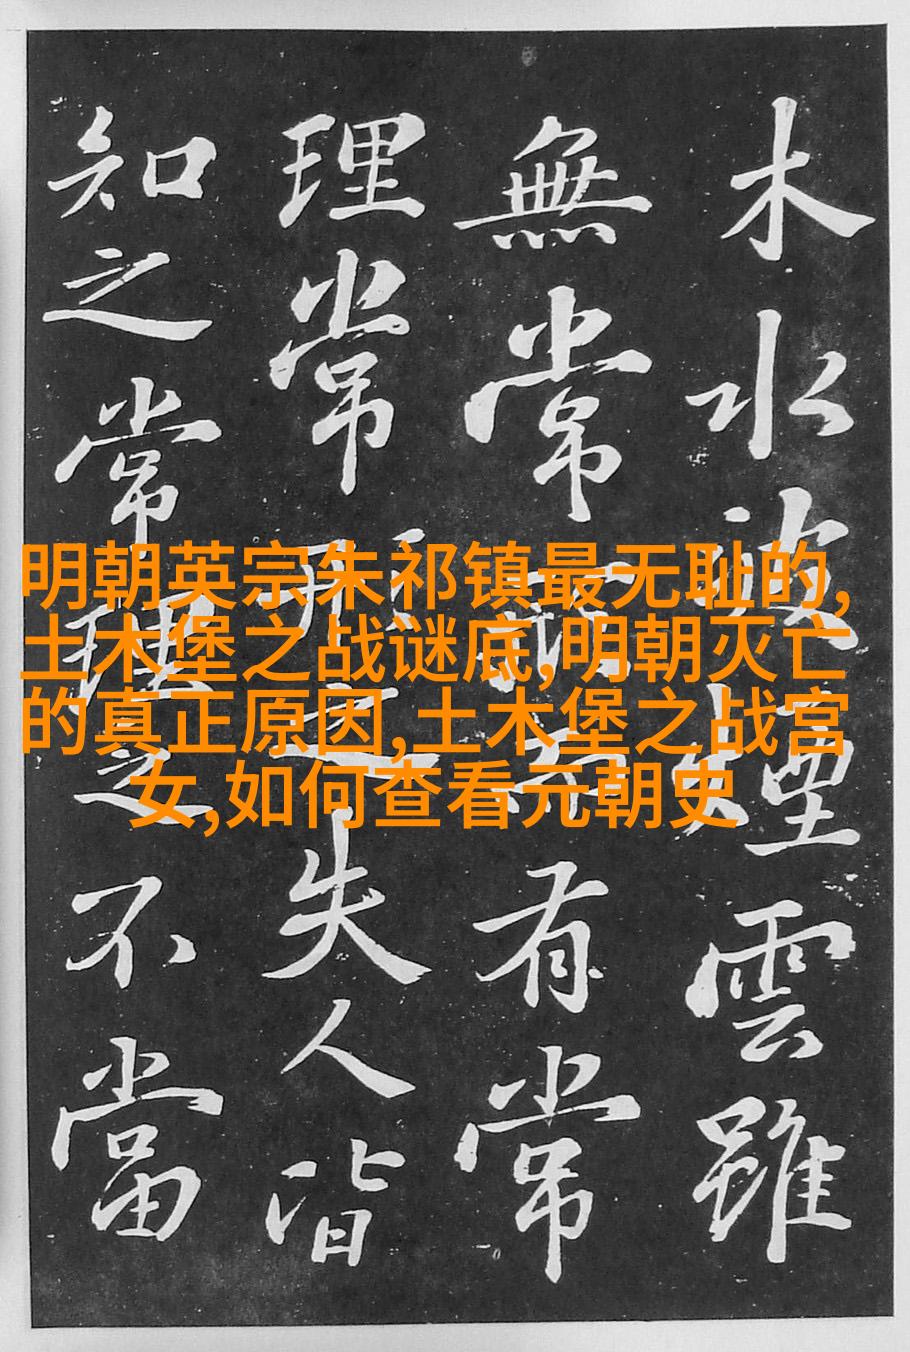 木水波煙雲雖
無常形而有常
理常形之失人皆
知之常理之不當
明朝英宗朱祁镇最无耻的,
土木堡之战谜底,明朝灭亡
的真正原因,土木堡之战宫
女,如何查看元朝史